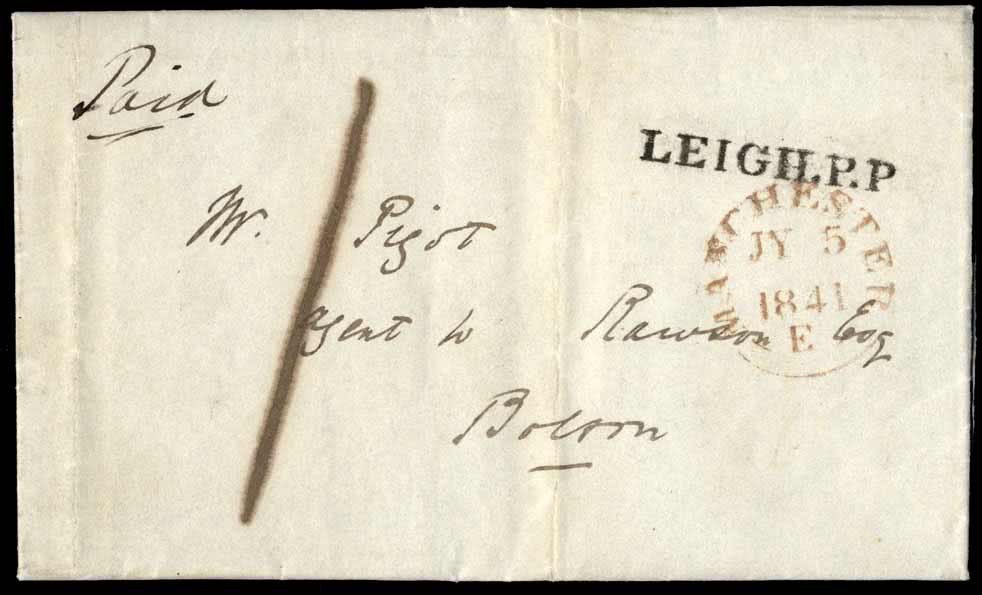 Paid
1
LEIGH.P.P
MANCHESTER
JY 5
1841
E
Mr. Pigot
agent to Rawson Esq
Bolton